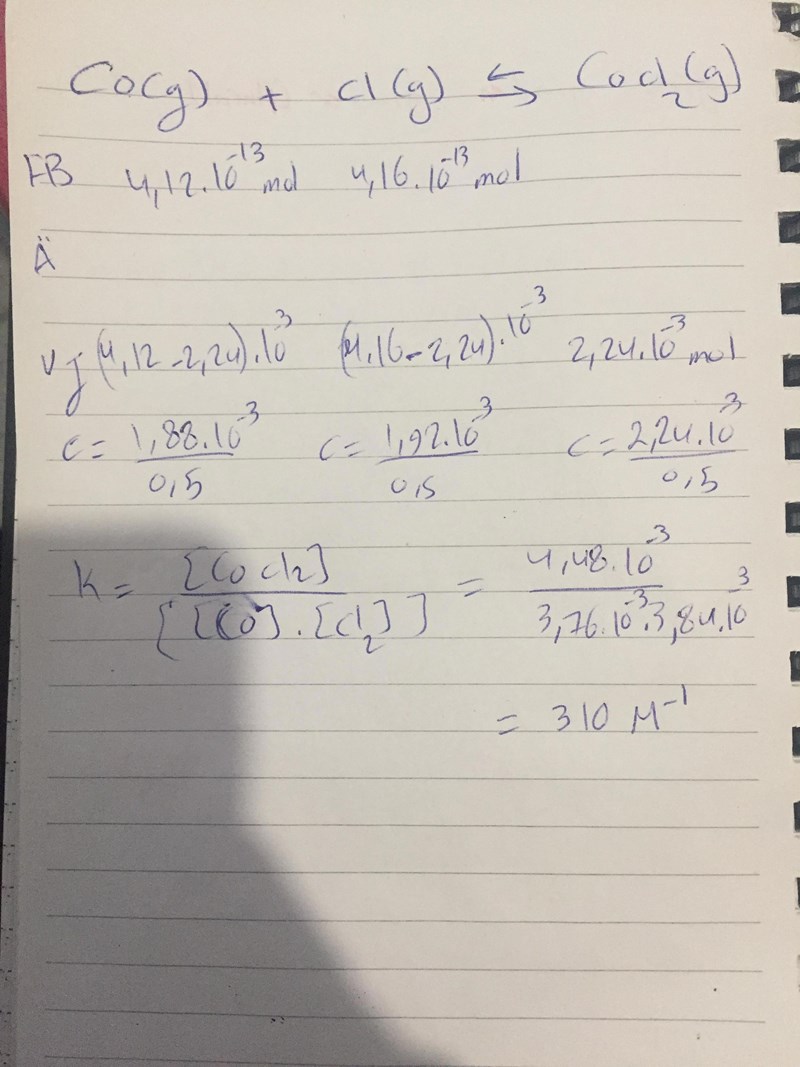 Co(g) + Cl(g) ⇆ CoCl₂(g)
FB 4,12.10⁻¹³ mol 4,16.10⁻¹³ mol
Ä
Vj (4,12-2,24).10⁻³ (4,16-2,24).10⁻³ 2,24.10⁻³ mol
c = 1,88.10⁻³/0,5 c = 1,92.10⁻³/0,5 c = 2,24.10⁻³/0,5
K = [CoCl2]/[[Co].[Cl₂]] = 4,48.10⁻³/3,76.10⁻³.3,84.10⁻³
= 310 M⁻¹